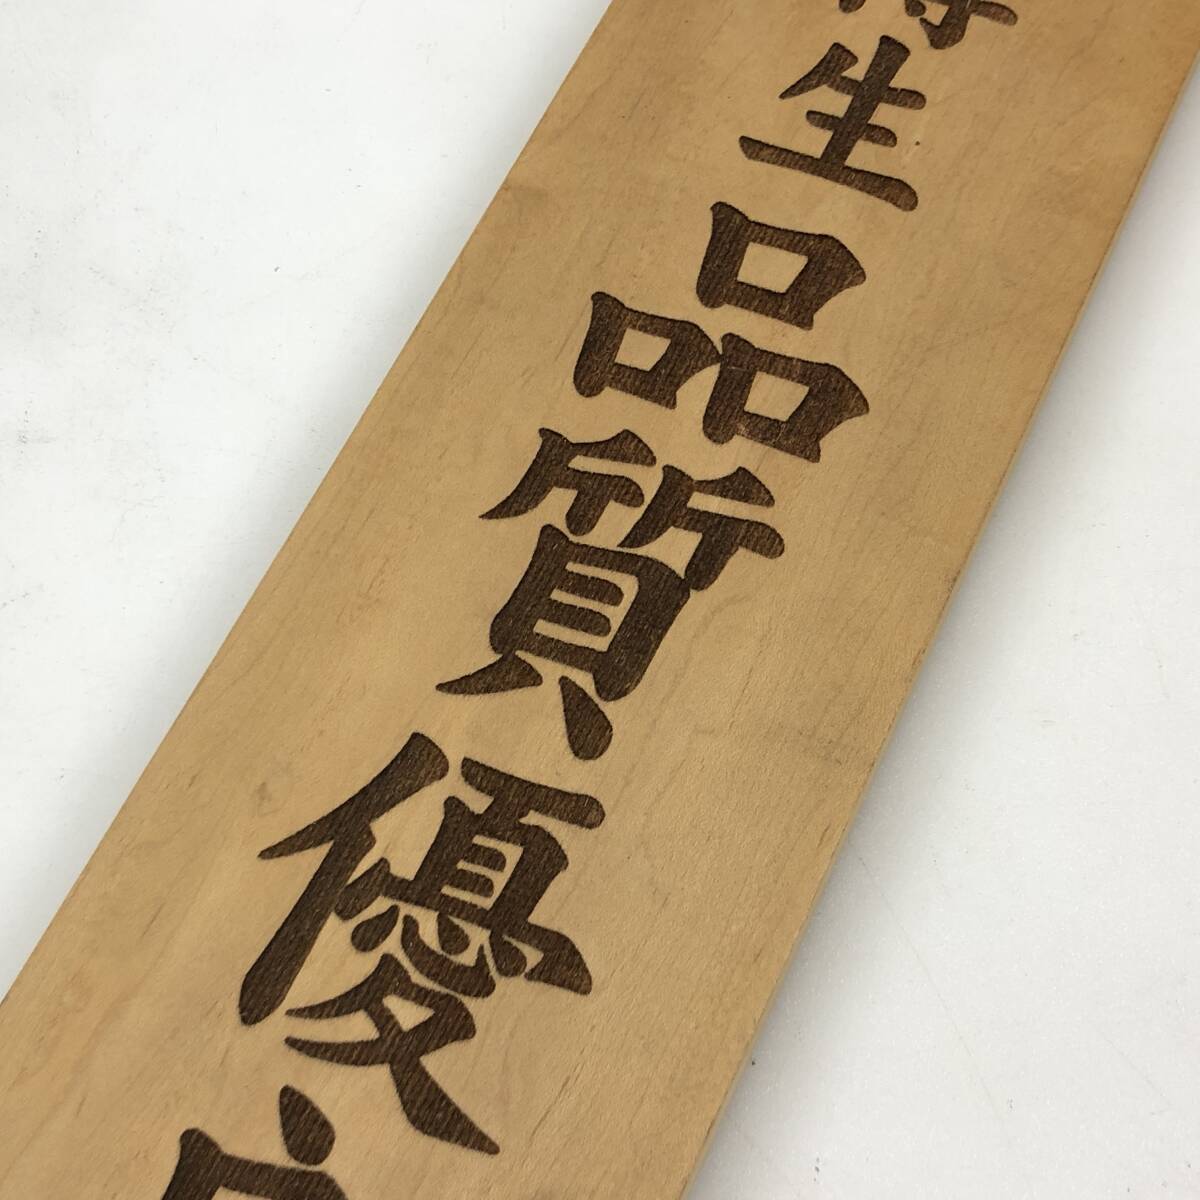 生品質優